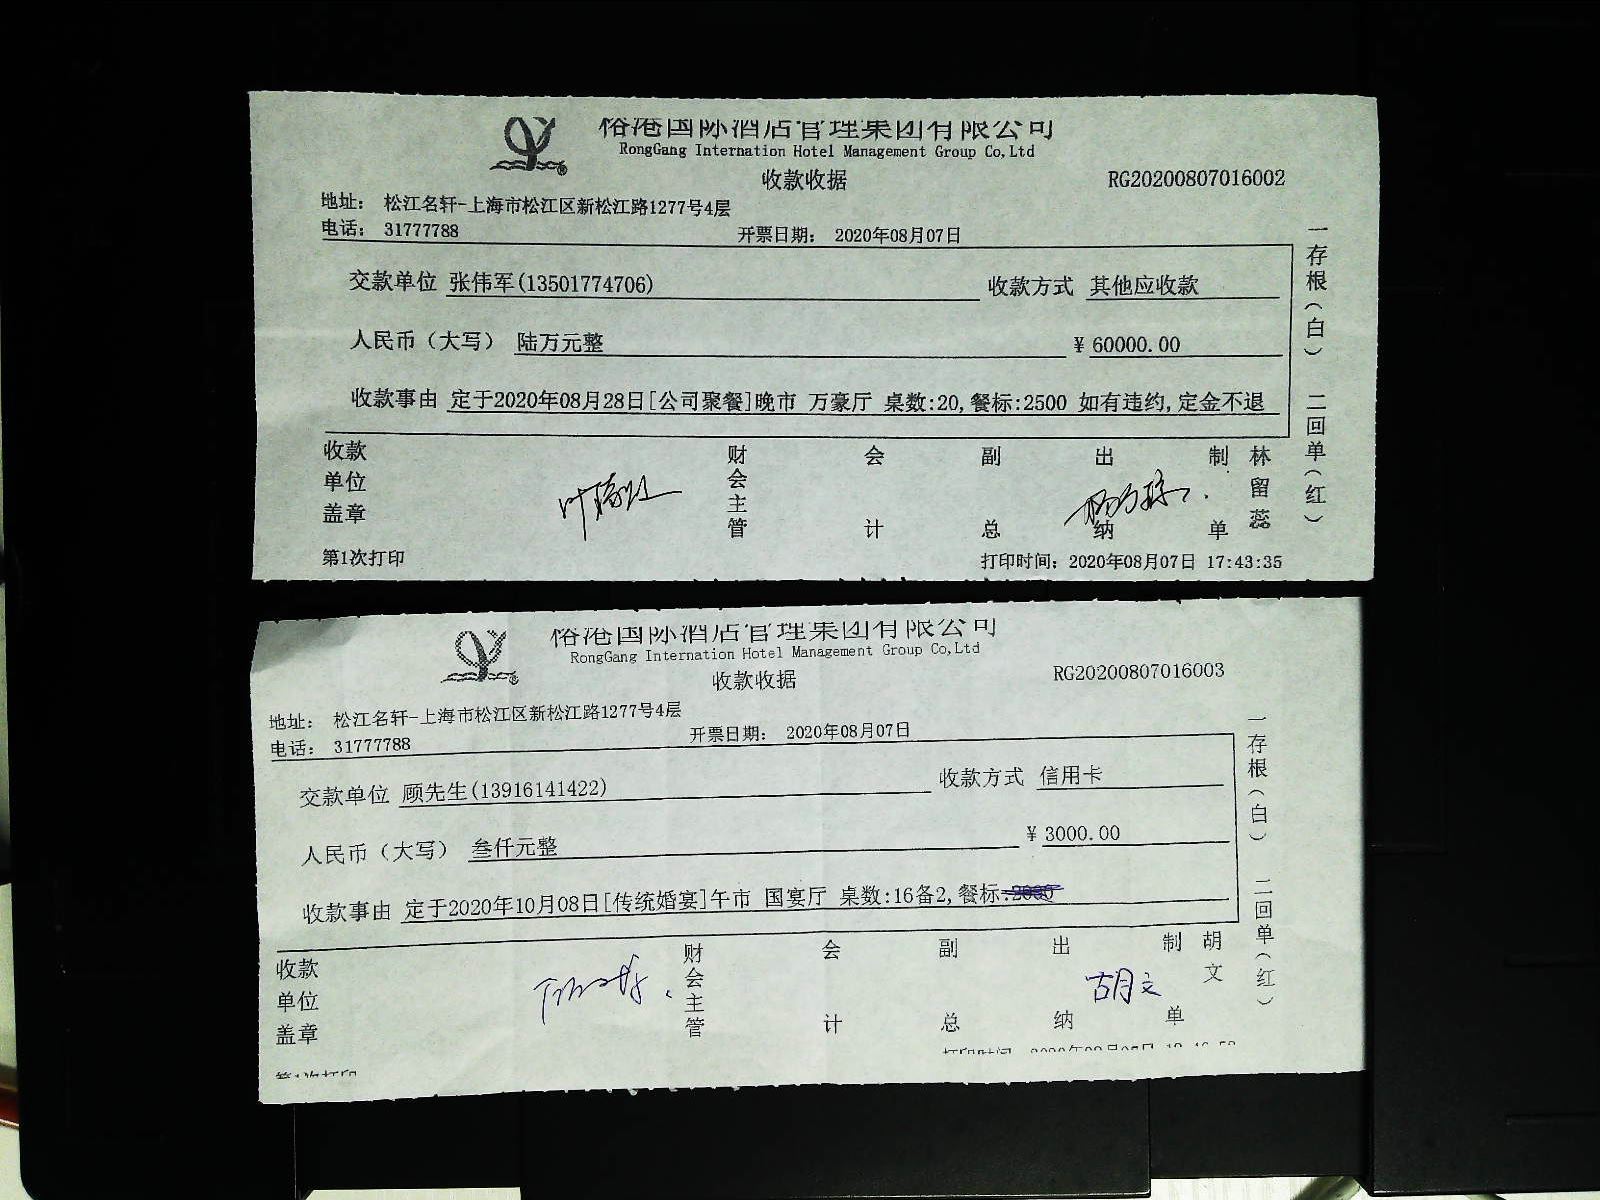 裕港国际酒店管理集团有限公司
RongGang Internation Hotel Management Group Co,Ltd
收款收据
RG20200807016002
地址： 松江名轩-上海市松江区新松江路1277号4层
电话： 31777788
开票日期： 2020年08月07日
交款单位 张伟军(13501774706) 收款方式 其他应收款
人民币（大写） 陆万元整 ¥ 60000.00
收款事由 定于2020年08月28日[公司聚餐]晚市 万豪厅 桌数:20,餐标:2500 如有违约,定金不退
收款单位盖章 财会主管 会计 副总 出纳 制单 林留蕊
一存根（白） 二回单（红）
第1次打印
打印时间：2020年08月07日 17:43:35
裕港国际酒店管理集团有限公司
RongGang Internation Hotel Management Group Co,Ltd
收款收据
RG20200807016003
地址： 松江名轩-上海市松江区新松江路1277号4层
电话： 31777788
开票日期： 2020年08月07日
交款单位 顾先生(13916141422) 收款方式 信用卡
人民币（大写） 叁仟元整 ¥ 3000.00
收款事由 定于2020年10月08日[传统婚宴]午市 国宴厅 桌数:16备2,餐标:
收款单位盖章 财会主管 会计 副总 出纳 胡文 制单 胡文
一存根（白） 二回单（红）
第1次打印